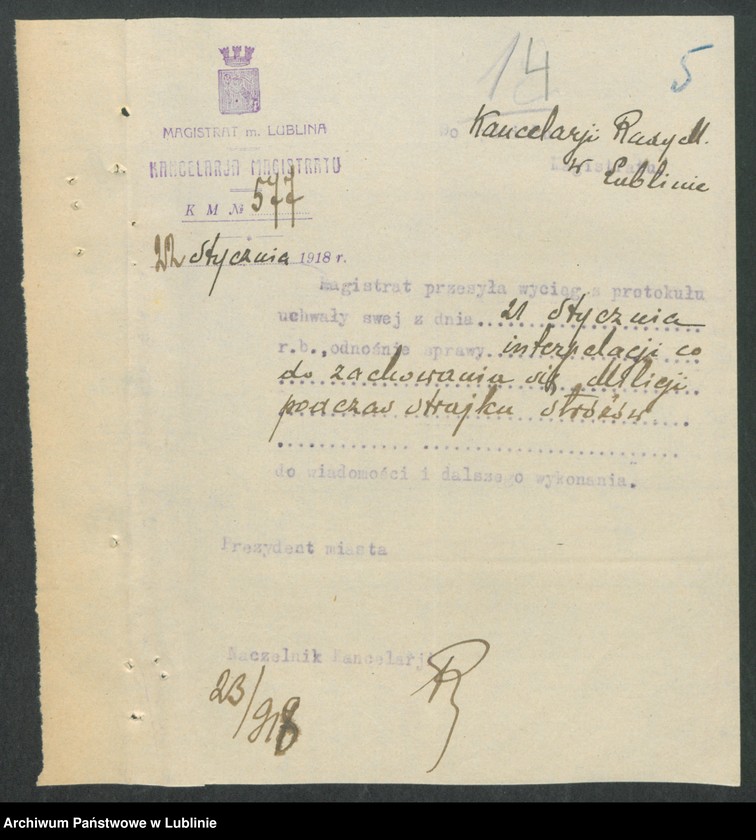 14
5
MAGISTRAT m. LUBLINA
KANCELARJA MAGISTRATU
K M № 577
22 stycznia 1918 r.
Do Kancelarji Rady M.
Magistratu
w Lublinie
Magistrat przesyła wyciąg z protokułu
uchwały swej z dnia 21 stycznia
r.b., odnośnie sprawy interpelacji co
do zachowania się Milicji
podczas strajku stróżów
do wiadomości i dalszego wykonania.
Prezydent miasta
Naczelnik Kancelarji
23/918
Archiwum Państwowe w Lublinie